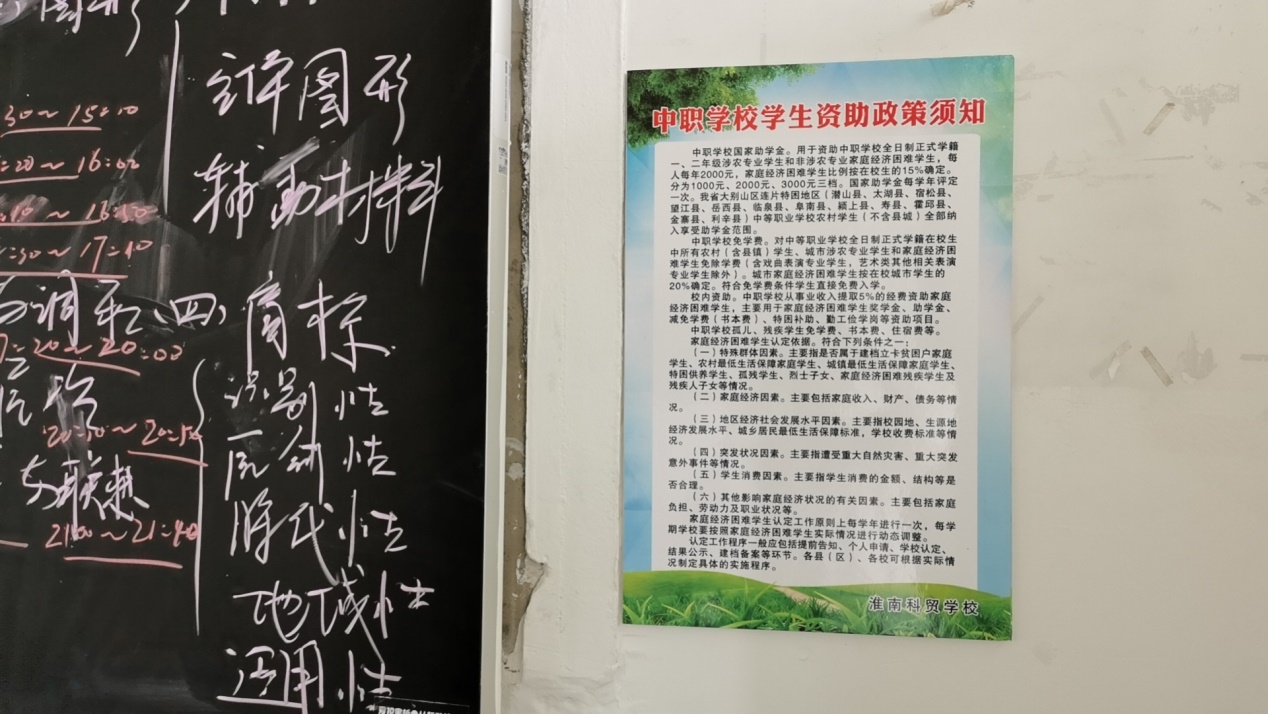 立体图形
30~15:10
:20~16:00
辅助材料
:10~16:50
:30~17:40
调和(四)
商标
:20~20:00
识别性
20:10~20:50
原创性
与联想
时代性
21:00~21:40
地域性
适用性
中职学校学生资助政策须知
中职学校国家助学金。用于资助中职学校全日制正式学籍
一、二年级涉农专业学生和非涉农专业家庭经济困难学生，每
人每年2000元，家庭经济困难学生比例按在校生的15%确定。
分为1000元、2000元、3000元三档。国家助学金每学年评定
一次。我省大别山区连片特困地区（潜山县、太湖县、宿松县、
望江县、岳西县、临泉县、阜南县、颍上县、寿县、霍邱县、
金寨县、利辛县）中等职业学校农村学生（不含县城）全部纳
入享受助学金范围。
中职学校免学费。对中等职业学校全日制正式学籍在校生
中所有农村（含县镇）学生、城市涉农专业学生和家庭经济困
难学生免除学费（含戏曲表演专业学生，艺术类其他相关表演
专业学生除外）。城市家庭经济困难学生按在校城市学生的
20%确定。符合免学费条件学生直接免费入学。
校内资助。中职学校从事业收入提取5%的经费资助家庭
经济困难学生，主要用于家庭经济困难学生奖学金、助学金、
减免学费（书本费）、特困补助、勤工俭学岗等资助项目。
中职学校孤儿、残疾学生免学费、书本费、住宿费等。
家庭经济困难学生认定依据。符合下列条件之一：
（一）特殊群体因素。主要指是否属于建档立卡贫困户家庭
学生、农村最低生活保障家庭学生、城镇最低生活保障家庭学生、
特困供养学生、孤残学生、烈士子女、家庭经济困难残疾学生及
残疾人子女等情况。
（二）家庭经济因素。主要包括家庭收入、财产、债务等情
况。
（三）地区经济社会发展水平因素。主要指校园地、生源地
经济发展水平、城乡居民最低生活保障标准，学校收费标准等情
况。
（四）突发状况因素。主要指遭受重大自然灾害、重大突发
意外事件等情况。
（五）学生消费因素。主要指学生消费的金额、结构等是
否合理。
（六）其他影响家庭经济状况的有关因素。主要包括家庭
负担、劳动力及职业状况等。
家庭经济困难学生认定工作原则上每学年进行一次，每学
期学校要按照家庭经济困难学生实际情况进行动态调整。
认定工作程序一般应包括提前告知、个人申请、学校认定、
结果公示、建档备案等环节。各县（区）、各校可根据实际情
况制定具体的实施程序。
淮南科贸学校